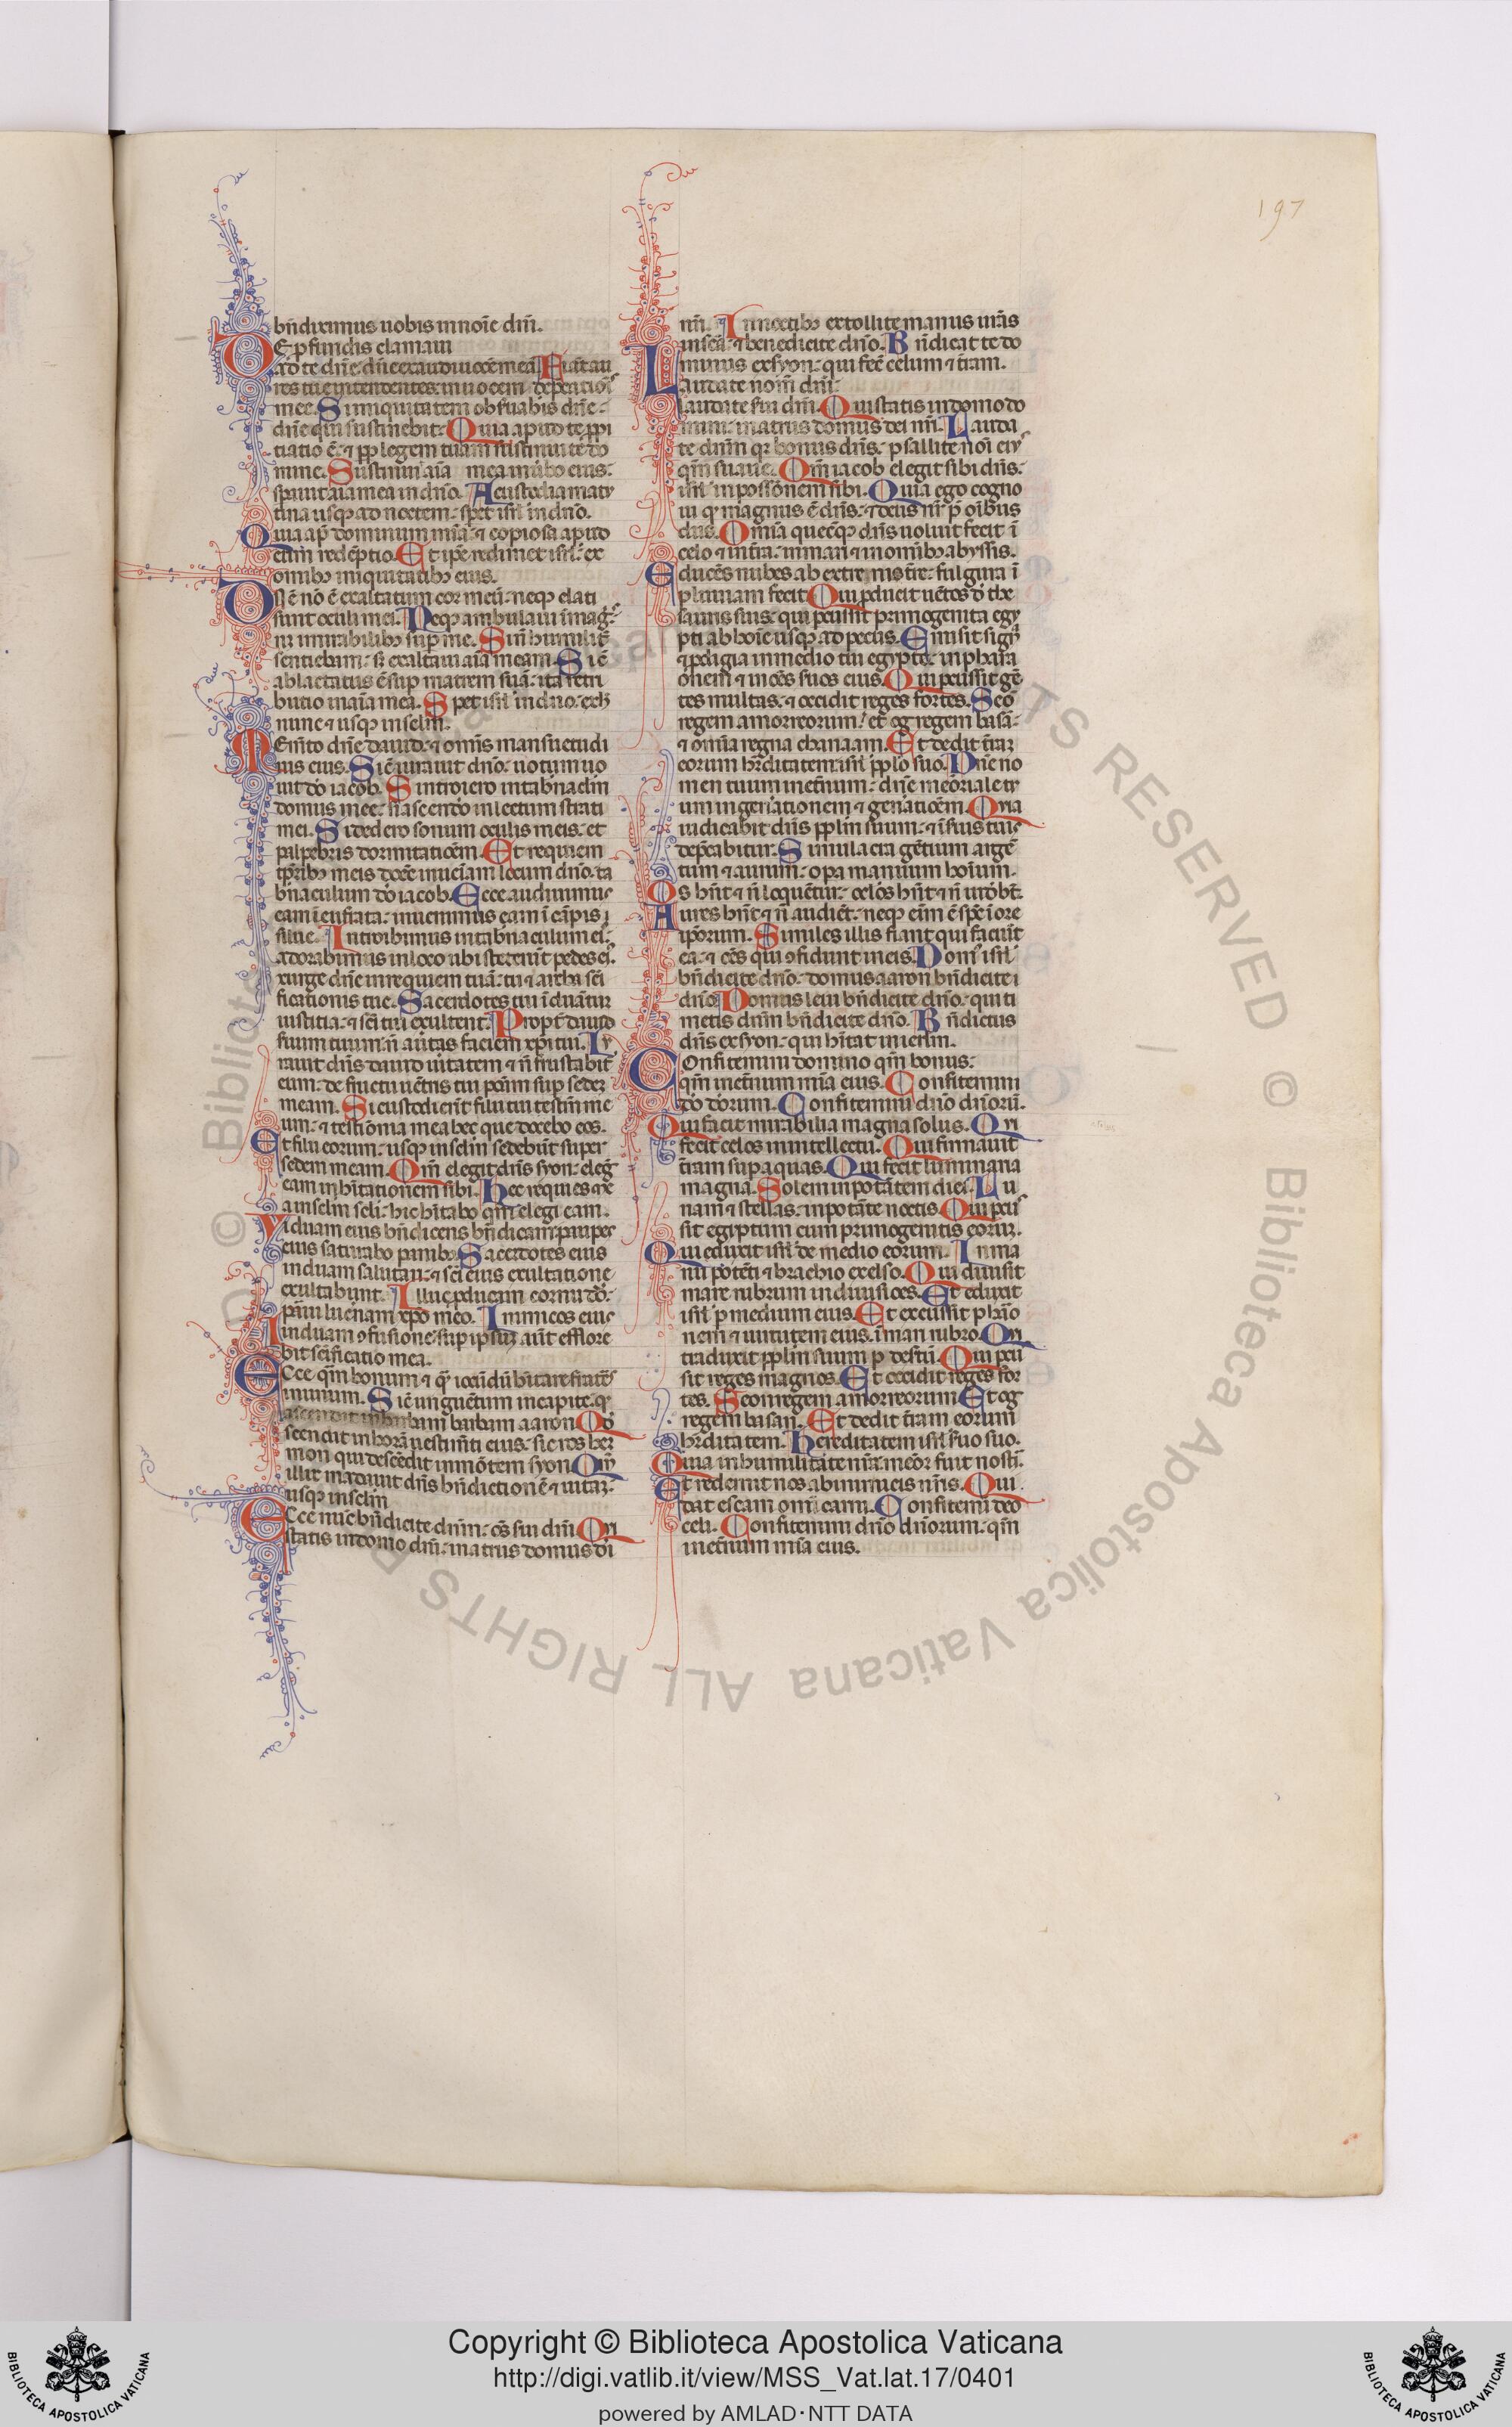 197
bñdiximus uobis in noīe dñi.
DE pfundis clamaui
ad te dñe: dñe exaudi uocē meā. Fiāt au
res tue intendentes: in uocem depcatiōis
mee. Si iniquitatem obsuabis dñe:
dñe quis sustinebit. Quia apud te ppi
tiatio ē: ⁊ pp legem tuam sustinui te do
mine. Sustinuit aīa mea in ūbo eius:
spauit aīa mea in dño. A custodia matu
tina usqꝫ ad noctem: spet isrł in dño.
Quia apd dominum mīa: ⁊ copiosa apud
eum redēptio. Et ipe redimet isrł: ex
omnibꝫ iniquitatibꝫ eius.
Dñe nō ē exaltatum cor meū: neqꝫ elati
sunt oculi mei. Neqꝫ ambulaui ī mag
nis: in mirabilibꝫ sup me. Si ñ humilit
sentiebam: sꝫ exaltaui aīam meam. Sic
ablactatus ē sup matrem suā: ita retri
butio in aīa mea. Spet isrł in dño: ex h
nunc ⁊ usqꝫ in sclm.
MEm̃to dñe dauid: ⁊ om̃is mansuetudi
nis eius. Sic iurauit dño: uotum uo
uit dō iacob. Si introiero in tabñaclm
domus mee: si ascendo in lectum strati
mei. Si dedero sonum oculis meis: et
palpebris dormitatiōem. Et requiem
tpribꝫ meis donec inueniam locum dño: ta
bñaculum dō iacob. Ecce audiuimus
eam ī eufrata: inuenimus eam ī cāpis
silue. Introibimus in tabñaculum eiꝰ:
adorabimus in loco ubi steterūt pedes eiꝰ.
Surge dñe in requiem tuā: tu ⁊ archa scī
ficationis tue. Sacerdotes tui īduātur
iustitia: ⁊ scī tui exultent. Propt dauid
suum tuum: ñ auertas faciem xpi tui. Iu
rauit dñs dauid uitatem ⁊ ñ frustabit
eum: de fructu uētris tui ponam sup sedeꝫ
meam. Si custodierīt filii tui testm̃ me
um: ⁊ testīonia mea hec que docebo eos.
Et filii eorum: usqꝫ in sclm sedebūt super
sedem meam. Qm̃ elegit dñs syon: eleg̃
eam in hītationem sibi. Hec requies mea
in sclm scli: hic hītabo qm̃ elegi eam.
Viduam eius bñdicens bñdicam: pauper
eius saturabo panibꝫ. Sacerdotes eius
induam salutari: ⁊ scī eius exultatione
exultabunt. Illuc pducam cornu dd:
paui lucnam xpo meo. Inimicos eius
induam ꝯfusione: sup ipsuꝫ aūt efflore
bit scīficatio mea.
ECce qm̃ bonum ⁊ qm̃ iocūdū hītare fratr̃s
in unum. Sic ūnguētum in capite: qd
descendit in barbam barbam aaron. Qd
descendit in horā uestimīti eius: sic ros her
mon qui descēdit in mōtem syon. Qm̃
illic mādauit dñs bñdictionē ⁊ uitaꝫ:
usqꝫ in sclm
ECce nūc bñdicite dñm: oēs sui dñi. Qui
statis in domo dñi: in atriis domus dī
nri. In noctibꝫ extollite manus uras
in scā: ⁊ benedicite dño. Bñdicat te do
minus ex syon: qui fec celum ⁊ tram.
Laudate nom̃ dñi:
laudate sui dñm. Qui statis in domo do
mini: in atriis domus dei nri. Lauda
te dñm qꝛ bonus dñs: psallite noī eiꝰ
qm̃ suaue. Qm̃ iacob elegit sibi dñs:
isrł in possōnem sibi. Quia ego cogno
ui qꝫ magnus ē dñs: ⁊ deus nr̃ p oībus
diis. Omia quecūqꝫ dñs uoluit fecit ī
celo ⁊ in tra: in mari ⁊ in om̃ibꝫ abyssis.
Educēs nubes ab extremis tre: fulgura ī
pluuiam fecit. Qui pducit uētos d thes
sauris suis: qui pcussit primogenita egy
pti ab hoīe usqꝫ ad pecus. Emisit signa
⁊ pdigia in medio tui egypte: in phara
onem ⁊ in oēs suos eius. Qui pcussit gē
tes multas: ⁊ occidit reges fortes. Seō
regem amorreorum: et og regem basā:
⁊ om̃ia regna chanaam. Et dedit traꝫ
eorum hrditatem: isrł pplo suo. Dñe no
men tuum in etnum: dñe meōriale tu
um in geñationem ⁊ geñatiōem. Quia
iudicabit dñs pplm suum: ⁊ ī suis suis
depcabitur. Simulacra gētium argē
tum ⁊ aurum: opa manuum hoīum.
Os hñt ⁊ ñ loquētur: oclos hñt ⁊ ñ uidebt.
Aures hñt ⁊ ñ audiēt: neqꝫ eim ē spc ī ore
ipōrum. Similes illis fiant qui faciūt
ea: ⁊ oēs qui ꝯfidunt in eis. Domꝰ isrł
bñdicite dño: domus aaron bñdicite
dño. Domus leui bñdicite dño: qui ti
metis dñm bñdicite dño. Bñdictus
dñs ex syon: qui hītat in ierlm.
COnfitemini domino qm̃ bonus:
qm̃ in etnum mīa eius. Confitemini
dō dōrum. Confitemini dño dñorū.
Qui facit mirabilia magna solus. Qui
fecit celos in intellectu. Qui firmauit
tram sup aquas. Qui fecit luminaria
magna. Solem in potātem diei. Lu
nam ⁊ stellas: in potāte noctis. Qui pcus
sit egiptum cum primogenitis eoruꝫ.
Qui eduxit isrł de medio eorum. In ma
nu potēti ⁊ brachio excelso. Qui diuisit
mare rubrum in diuisiōes. Et eduxit
isrł p medium eius. Et excussit phāo
nem ⁊ uirtutem eius: ī mari rubro. Qui
traduxit pplm suum p destū. Qui pcus
sit reges magnos. Et occidit reges for
tes. Seon regem amorreorum. Et og
regem basan. Et dedit tram eorum
hrditatem. Hereditatem isrł suo suo.
Quia in humilitate nra: meōr fuit nostri.
Et redemit nos ab inimicis nris. Qui
dat escam om̃i carni. Confitemī deo
celi. Confitemini dño dñorum: qm̃
in etnum mīa eius.
Copyright © Biblioteca Apostolica Vaticana
http://digi.vatlib.it/view/MSS_Vat.lat.17/0401
powered by AMLAD·NTT DATA
BIBLIOTECA APOSTOLICA VATICANA
BIBLIOTECA APOSTOLICA VATICANA
© Biblioteca Apostolica Vaticana ALL RIGHTS RESERVED